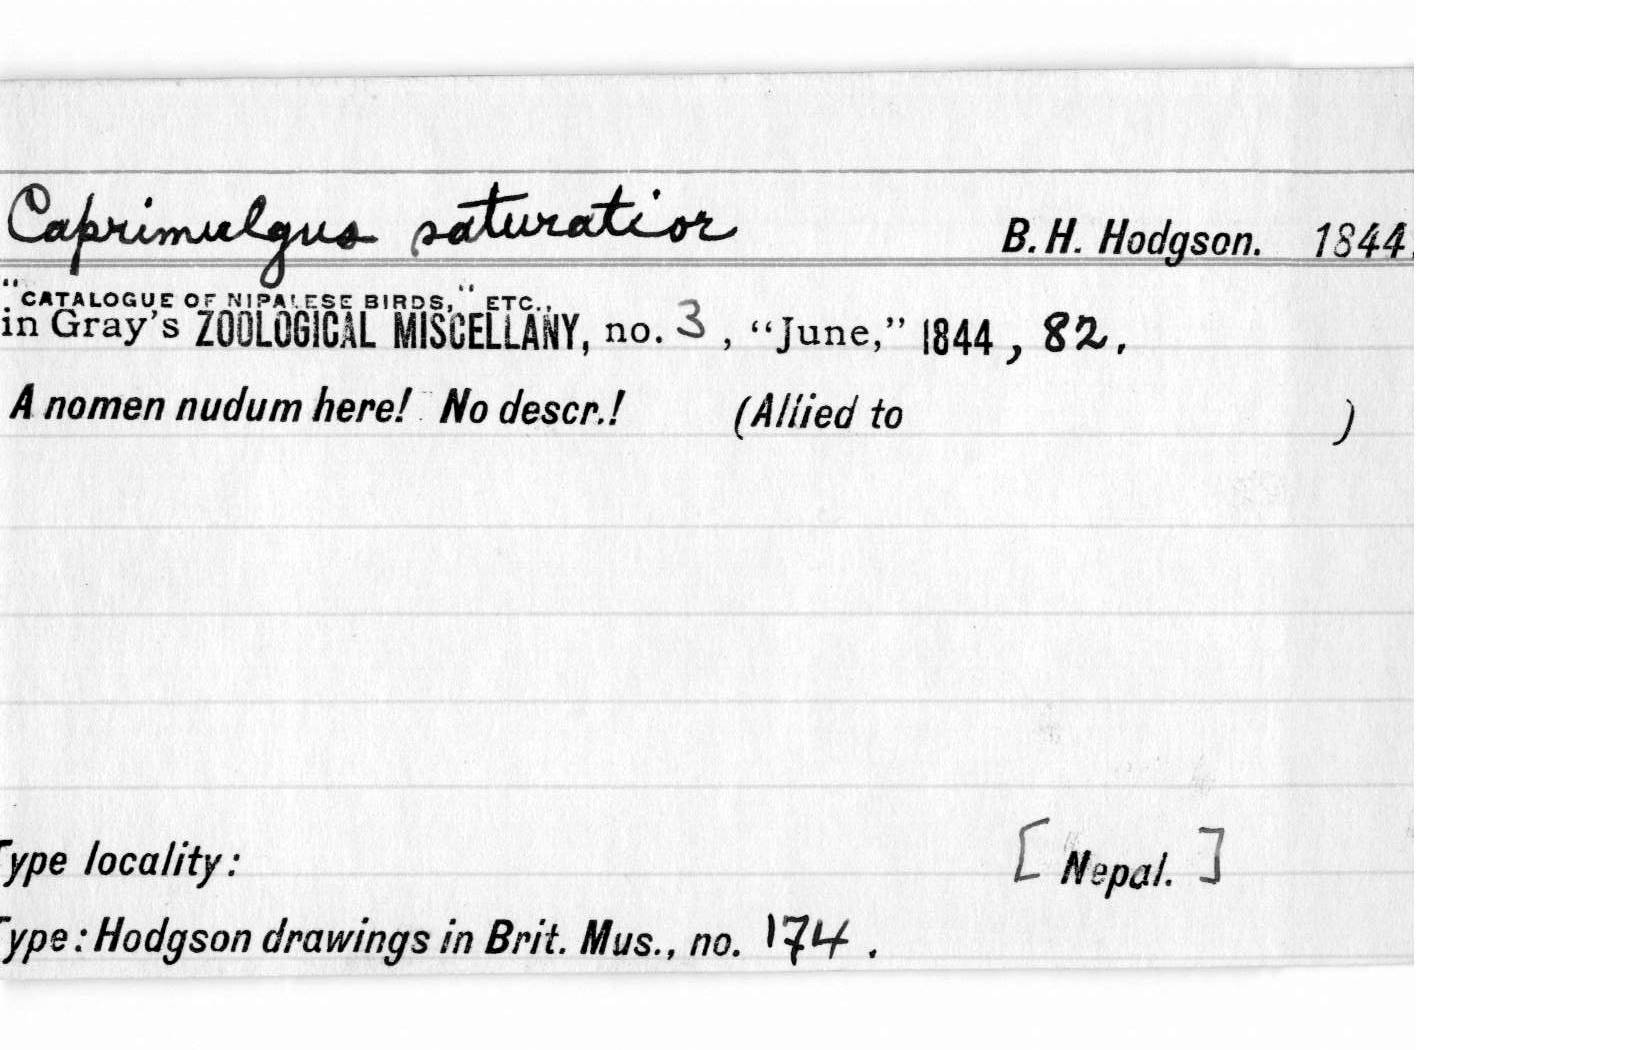 Caprimulgus saturatior B. H. Hodgson. 1844.
"CATALOGUE OF NIPALESE BIRDS," ETC.,
in Gray's ZOOLOGICAL MISCELLANY, no. 3, "June," 1844, 82.
A nomen nudum here! No descr.! (Allied to )
Type locality: [Nepal.]
Type: Hodgson drawings in Brit. Mus., no. 174.